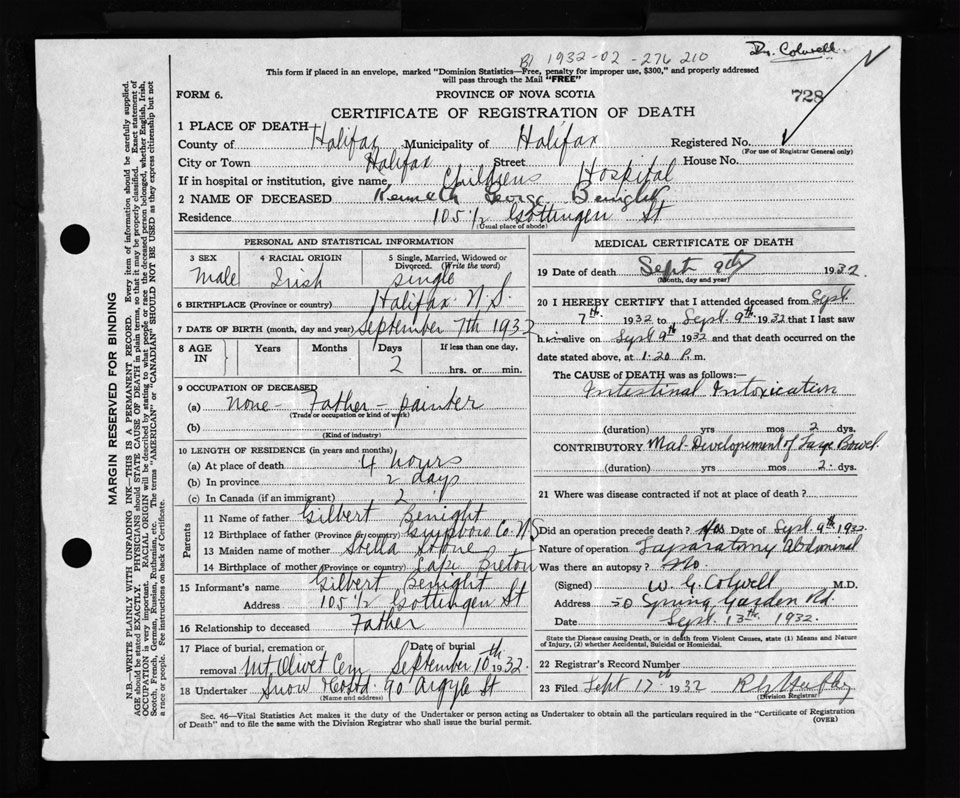 Dr. Colwell
1932-02-276210
This form if placed in an envelope, marked "Dominion Statistics—Free, penalty for improper use, $300," and properly addressed
will pass through the Mail "FREE"
FORM 6.
PROVINCE OF NOVA SCOTIA
728
CERTIFICATE OF REGISTRATION OF DEATH
1 PLACE OF DEATH
County of Halifax Municipality of Halifax Registered No.
(For use of Registrar General only)
City or Town Halifax Street House No.
If in hospital or institution, give name Childrens Hospital
2 NAME OF DECEASED Kenneth George Benight
Residence 105 1/2 Gottingen St
(Usual place of abode)
PERSONAL AND STATISTICAL INFORMATION
3 SEX 4 RACIAL ORIGIN 5 Single, Married, Widowed or Divorced. (Write the word)
Male Irish Single
6 BIRTHPLACE (Province or country) Halifax N.S.
7 DATE OF BIRTH (month, day and year) September 7th 1932
8 AGE IN Years Months Days If less than one day,
2 hrs. or min.
9 OCCUPATION OF DECEASED
(a) None - Father - painter
(Trade or occupation or kind of work)
(b)
(Kind of industry)
10 LENGTH OF RESIDENCE (in years and months)
(a) At place of death 4 hours
(b) In province 2 days
(c) In Canada (if an immigrant) 2
Parents
11 Name of father Gilbert Benight
12 Birthplace of father (Province or country) Guysboro Co. N.S
13 Maiden name of mother Stella
14 Birthplace of mother (Province or country) Cape Breton
15 Informant's name Gilbert Benight
Address 105 1/2 Gottingen St
16 Relationship to deceased Father
17 Place of burial, cremation or removal Mt Olivet Cem Date of burial September 10 1932
18 Undertaker Snow 90 Argyle St
(Name and address)
MEDICAL CERTIFICATE OF DEATH
19 Date of death Sept 9th 1932
(Month, day and year)
20 I HEREBY CERTIFY that I attended deceased from Sept
7th 1932 to Sept. 9th 1932 that I last saw
him alive on Sept 9th 1932 and that death occurred on the
date stated above, at 1.20 P. m.
The CAUSE of DEATH was as follows:—
Intestinal Intoxication
(duration) yrs mos 2 dys.
CONTRIBUTORY Mal-Developement of Large Bowel
(duration) yrs mos 2 dys.
21 Where was disease contracted if not at place of death?
Did an operation precede death? Yes Date of Sept. 9th 1932
Nature of operation Laparatomy Abdominal
Was there an autopsy? No
(Signed) W. G. Colwell M.D.
Address 50 Spring Garden Rd
Date Sept. 13th 1932.
State the Disease causing Death, or in death from Violent Causes, state (1) Means and Nature of Injury, (2) whether Accidental, Suicidal or Homicidal.
22 Registrar's Record Number
23 Filed Sept 17th 1932
(Division Registrar)
Sec. 46—Vital Statistics Act makes it the duty of the Undertaker or person acting as Undertaker to obtain all the particulars required in the "Certificate of Registration
of Death" and to file the same with the Division Registrar who shall issue the burial permit.
(OVER)
MARGIN RESERVED FOR BINDING
N.B.—WRITE PLAINLY WITH UNFADING INK—THIS IS A PERMANENT RECORD. Every item of information should be carefully supplied.
AGE should be stated EXACTLY. PHYSICIANS should STATE CAUSE OF DEATH in plain terms, so that it may be properly classified. Exact statement of
OCCUPATION is very important. RACIAL ORIGIN will be described by stating to what people or race the deceased person belonged, whether English, Irish,
Scotch, French, German, Russian, Ruthenian, etc. The terms "AMERICAN" or "CANADIAN" SHOULD NOT BE USED as they express citizenship but not
a race or people. See instructions on back of Certificate.